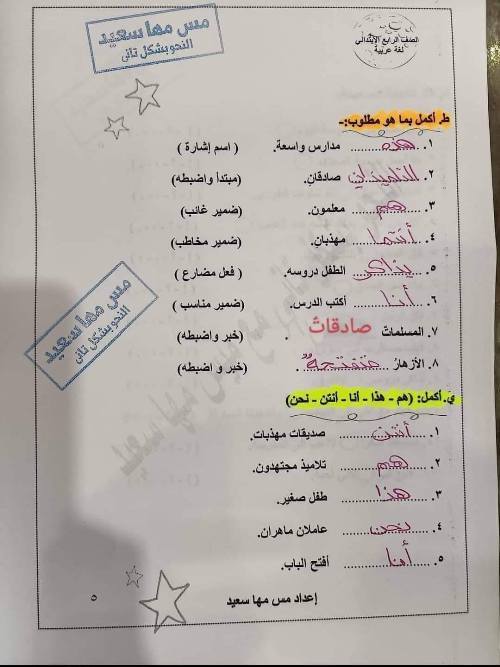 مس مها سعيد
النحو بشكل تانى
الصف الرابع الإبتدائي
لغة عربية
ط. أكمل بما هو مطلوب:-
١. هذه مدارس واسعة. ( اسم إشارة )
٢. التلميذان صادقان. (مبتدأ واضبطه)
٣. هم معلمون. (ضمير غائب)
٤. أنتما مهذبان. (ضمير مخاطب)
٥. يذاكر الطفل دروسه. ( فعل مضارع )
٦. أنا أكتب الدرس. (ضمير مناسب )
٧. المسلمات صادقاتٌ . (خبر واضبطه)
٨. الأزهارُ متفتحةٌ . (خبر و اضبطه)
مس مها سعيد
النحو بشكل تانى
ي. أكمل: (هم - هذا - أنا - أنتن - نحن)
١. أنتن صديقات مهذبات.
٢. هم تلاميذ مجتهدون.
٣. هذا طفل صغير.
٤. نحن عاملان ماهران.
٥. أنا أفتح الباب.
إعداد مس مها سعيد
٥